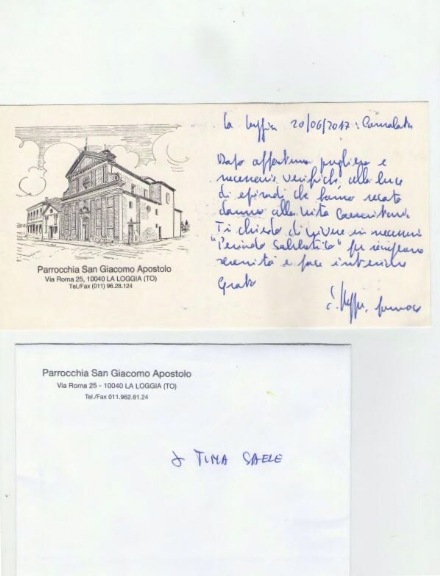 La Loggia 20/06/2017:
Dopo affettuosa preghiera e
necessarie verifiche, alla luce
di episodi che hanno recato
danno alla vita Comunitaria
Ti chiedo di vivere un necessario
"Periodo Sabbatico" per
serenità e pace interiore
Grato
Parrocchia San Giacomo Apostolo
Via Roma 25, 10040 LA LOGGIA (TO)
Tel./Fax (011) 96.28.124
Parrocchia San Giacomo Apostolo
Via Roma 25 - 10040 LA LOGGIA (TO)
Tel./Fax 011.962.81.24
TIMA SAELE